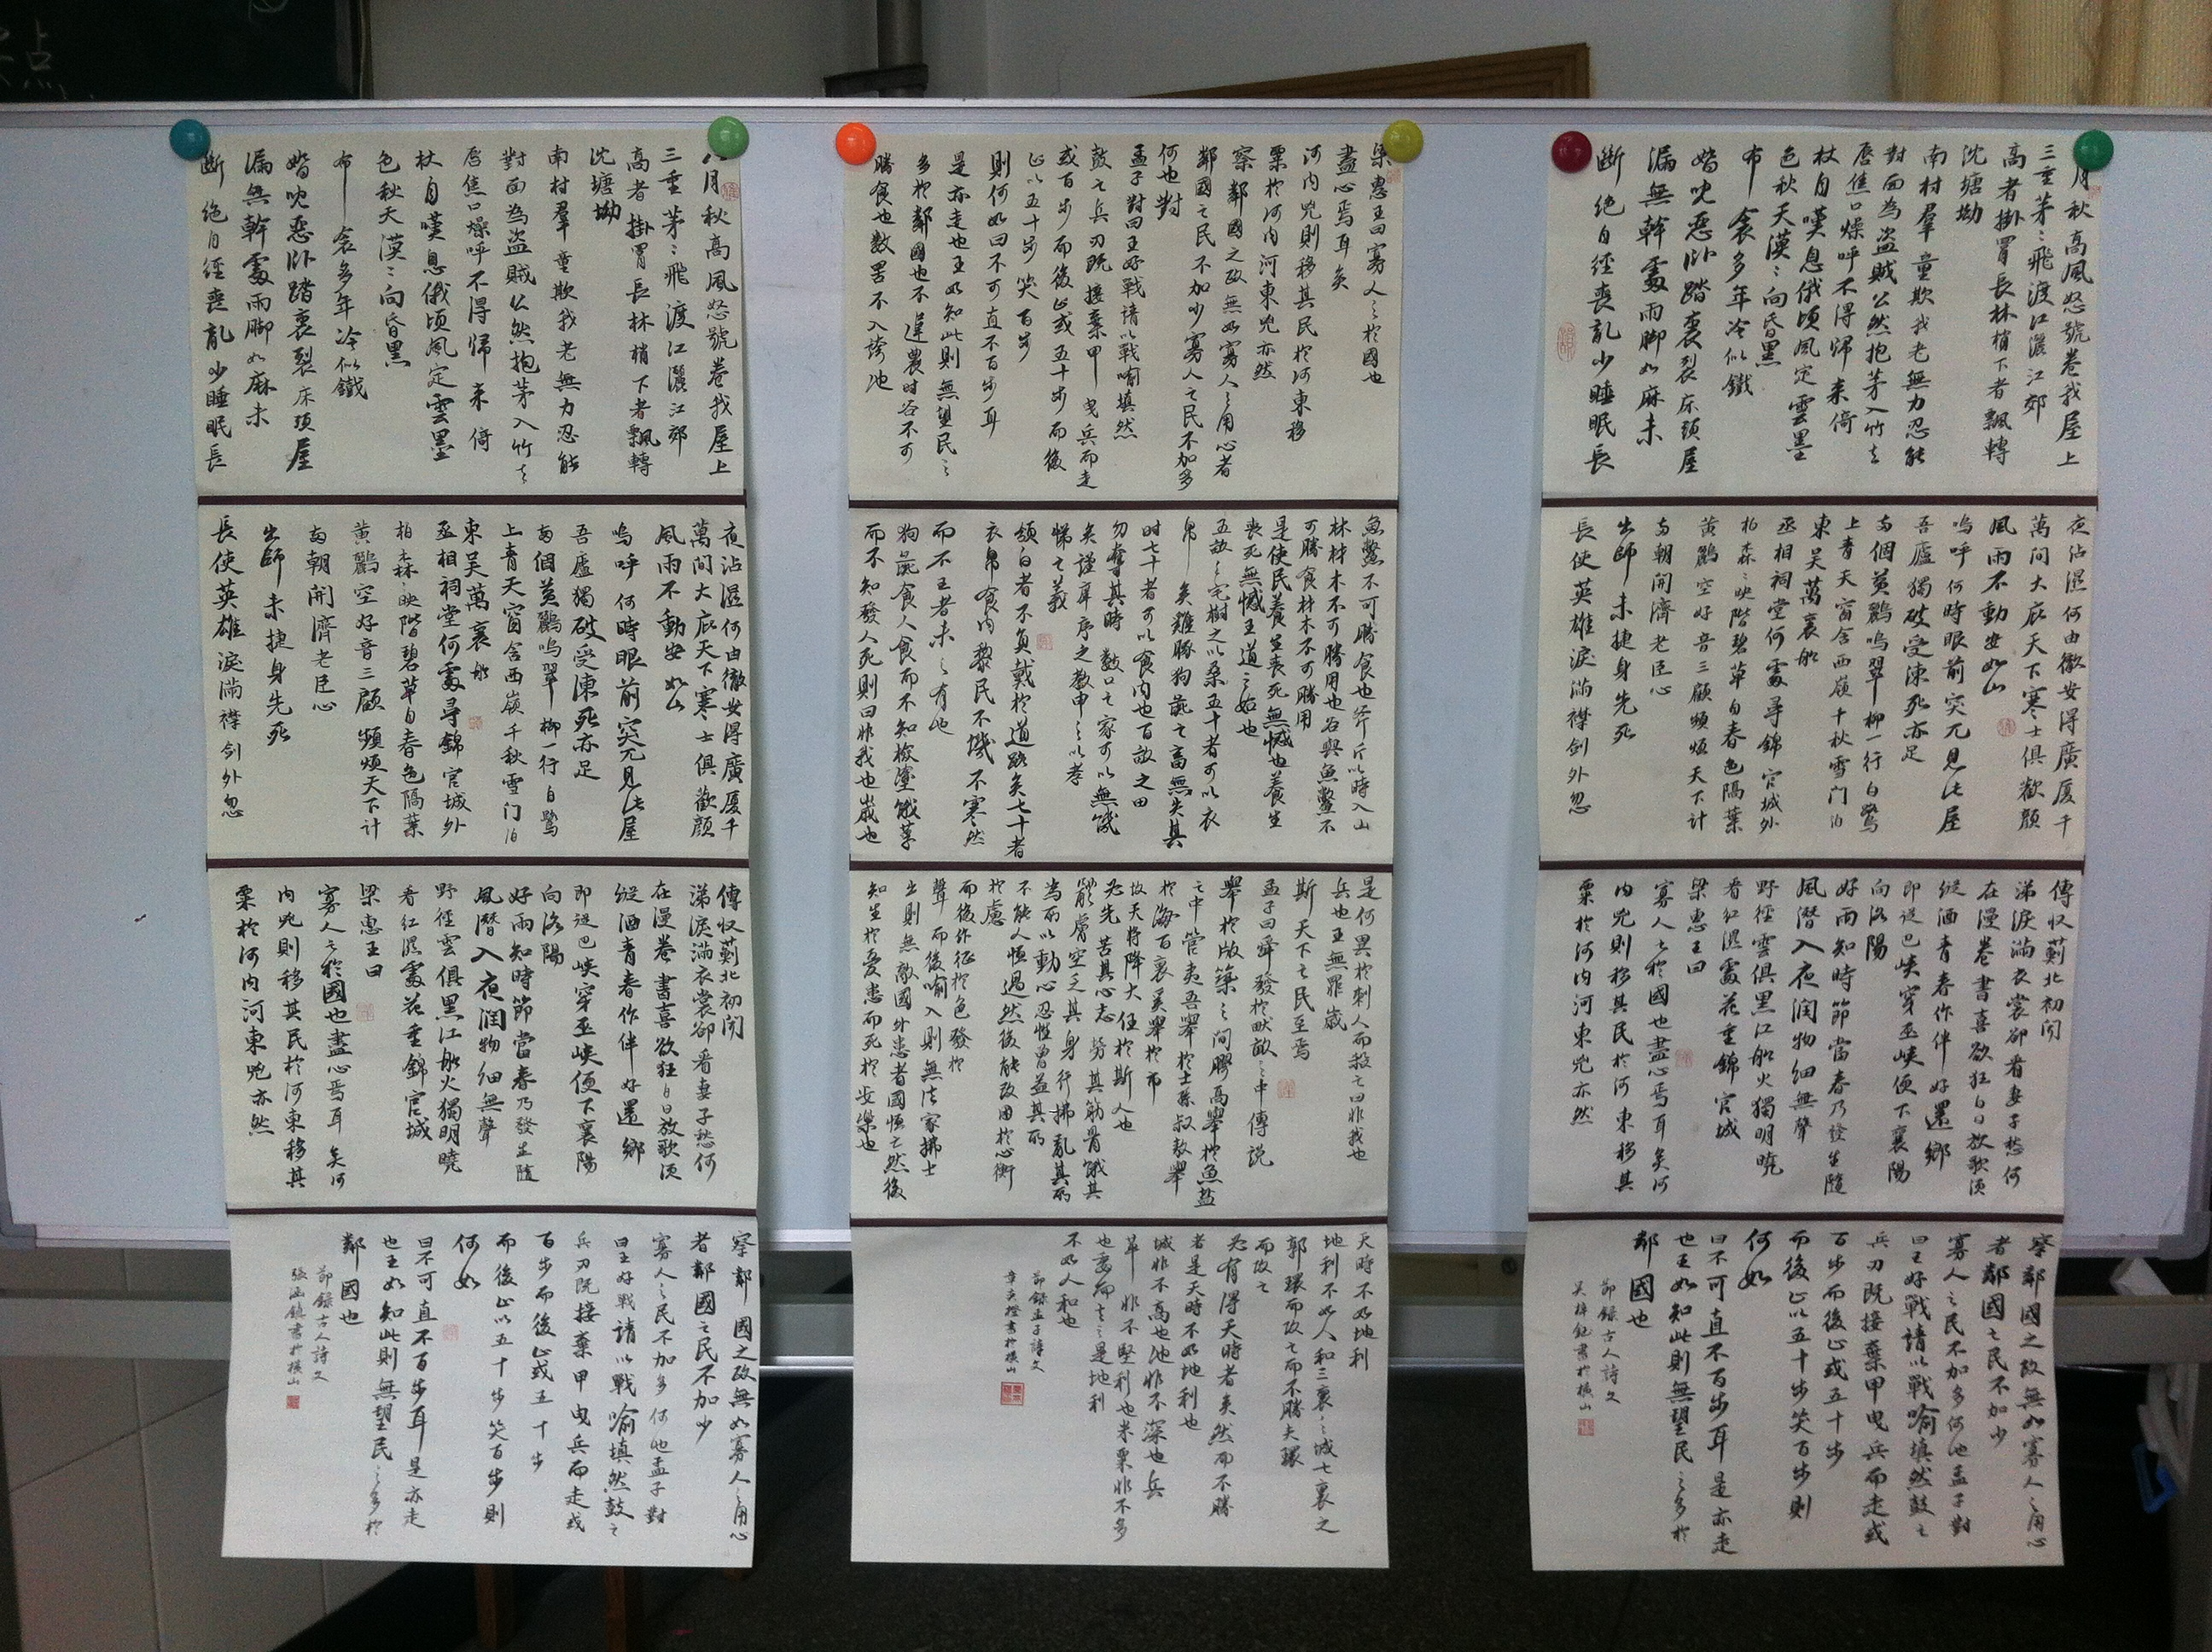 点
八月秋高風怒號卷我屋上
三重茅〻飛渡江灑江郊
高者掛罥長林梢下者飄轉
沈塘坳
南村羣童欺我老無力忍能
對面為盜賊公然抱茅入竹去
唇焦口燥呼不得歸来倚
杖自嘆息俄頃風定雲墨
色秋天漠〻向昏黑
布衾多年冷似鐵
嬌兒惡臥踏裏裂床頭屋
漏無幹處雨腳如麻未
斷絕自經喪亂少睡眠長
夜沾濕何由徹安得廣厦千
萬間大庇天下寒士俱歡顔
風雨不動安如山
嗚呼何時眼前突兀見此屋
吾廬獨破受凍死亦足
兩個黃鸝鳴翠柳一行白鷺
上青天窗含西嶺千秋雪门泊
東吴萬裏船
丞相祠堂何處尋錦官城外
柏森〻映階碧草自春色隔葉
黄鸝空好音三顧頻煩天下計
兩朝開濟老臣心
出師未捷身先死
長使英雄淚滿襟剑外忽
傳収薊北初聞
涕淚滿衣裳卻看妻子愁何
在漫卷書喜欲狂白日放歌須
縱酒青春作伴好還鄉
即從巴峽穿巫峽便下襄陽
向洛陽
好雨知時節當春乃發生隨
風潛入夜潤物细無聲
野徑雲俱黑江船火獨明曉
看紅濕處花重錦官城
梁惠王曰
寡人之於國也盡心焉耳矣河
内兇則移其民於河東移其
粟於河内河東兇亦然
察鄰國之政無如寡人之用心
者鄰國之民不加少
寡人之民不加多何也孟子對
曰王好戰請以戰喻填然鼓之
兵刃既接棄甲曳兵而走或
百步而後止或五十步
而後止以五十步笑百步則
何如
曰不可直不百步耳是亦走
也王如知此則無望民之多於
鄰國也
節録古人詩文
張涵鎮書於橫山
梁惠王曰寡人之於國也
盡心焉耳矣
河内兇則移其民於河東移
粟於河内河東兇亦然
察鄰國之政無如寡人之用心者
鄰國之民不加少寡人之民不加多
何也對
孟子對曰王好戰請以戰喻填然
鼓之兵刃既接棄甲曳兵而走
或百步而後止或五十步而後
止以五十步笑百步
則何如曰不可直不百步耳
是亦走也王如知此則無望民之
多於鄰國也不違農时谷不可
勝食也數罟不入洿池
魚鱉不可勝食也斧斤以時入山
林材木不可勝用也谷與魚鱉不
可勝食材木不可勝用
是使民養生喪死無憾也養生
喪死無憾王道之始也
五畝之宅樹之以桑五十者可以衣
帛矣雞豚狗彘之畜無失其
时七十者可以食肉也百畝之田
勿奪其時數口之家可以無饑
矣谨庠序之教申之以孝
悌之義
頒白者不負戴於道路矣七十者
衣帛食肉黎民不饑不寒然
而不王者未之有也
狗彘食人食而不知檢塗饿莩
而不知發人死則曰非我也歲也
是何異於刺人而殺之曰非我也
兵也王無罪歲
斯天下之民至焉
孟子曰舜發於畎畝之中傅説
舉於版築之间膠鬲舉於魚盐
之中管夷吾舉於士孫叔敖舉
於海百裏奚舉於市
故天将降大任於斯人也
必先苦其心志勞其筋骨餓其
體膚空乏其身行拂亂其所
為所以動心忍性曾益其所
不能人恒過然後能改困於心衡
於慮
而後作征於色發於
聲而後喻入則無法家拂士
出則無敵國外患者國恒亡然後
知生於憂患而死於安樂也
天時不如地利
地利不如人和三裏之城七裏之
郭環而攻之而不勝夫環
而攻之
必有得天時者矣然而不勝
者是天時不如地利也
城非不高也池非不深也兵
革非不堅利也米粟非不多
也委而去之是地利
不如人和也
節録孟子詩文
月秋高風怒號卷我屋上
三重茅〻飛渡江灑江郊
高者掛罥長林梢下者飄轉
沈塘坳
南村羣童欺我老無力忍能
對面為盜賊公然抱茅入竹去
唇焦口燥呼不得歸来倚
杖自嘆息俄頃風定雲墨
色秋天漠〻向昏黑
布衾多年冷似鐵
嬌兒惡臥踏裏裂床頭屋
漏無幹處雨腳如麻未
斷絕自經喪亂少睡眠長
夜沾濕何由徹安得廣厦千
萬間大庇天下寒士俱歡顔
風雨不動安如山
嗚呼何時眼前突兀見此屋
吾廬獨破受凍死亦足
兩個黃鸝鳴翠柳一行白鷺
上青天窗含西嶺千秋雪门泊
東吴萬裏船
丞相祠堂何處尋錦官城外
柏森〻映階碧草自春色隔葉
黄鸝空好音三顧頻煩天下計
兩朝開濟老臣心
出師未捷身先死
長使英雄淚滿襟剑外忽
傳収薊北初聞
涕淚滿衣裳卻看妻子愁何
在漫卷書喜欲狂白日放歌須
縱酒青春作伴好還鄉
即從巴峽穿巫峽便下襄陽
向洛陽
好雨知時節當春乃發生隨
風潛入夜潤物细無聲
野徑雲俱黑江船火獨明曉
看紅濕處花重錦官城
梁惠王曰
寡人之於國也盡心焉耳矣河
内兇則移其民於河東移其
粟於河内河東兇亦然
察鄰國之政無如寡人之用心
者鄰國之民不加少
寡人之民不加多何也孟子對
曰王好戰請以戰喻填然鼓之
兵刃既接棄甲曳兵而走或
百步而後止或五十步
而後止以五十步笑百步則
何如
曰不可直不百步耳是亦走
也王如知此則無望民之多於
鄰國也
節録古人詩文